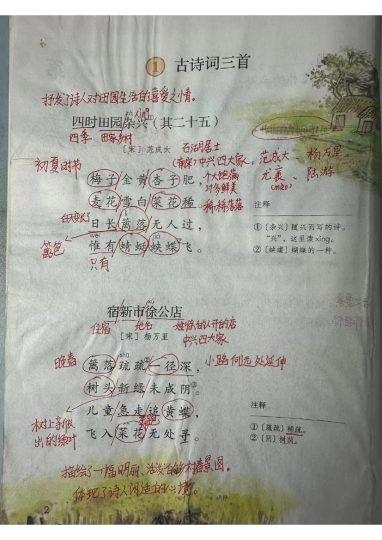 1 古诗词三首
抒发了诗人对田园生活的喜爱之情。
四时田园杂兴（其二十五）
四季 田家乡村
[宋] 范成大 石湖居士
(南宋)中兴四大家：范成大、杨万里、
尤袤、陆游
初夏时节
梅子金黄杏子肥，
个大饱满
汁多鲜美
麦花雪白菜花稀。
稀稀落落
日长篱落无人过，
篱笆
惟有蜻蜓蛱蝶飞。
只有
注释
①〔杂兴〕随兴而写的诗。
“兴”，这里读xìng。
②〔蛱蝶〕蝴蝶的一种。
宿新市徐公店
住宿 地名 姓徐的人开的店
[宋] 杨万里 中兴四大家
篱落疏疏一径深，
小路伸向远处
树头新绿未成阴。
儿童急走追黄蝶，
树上新
出的
飞入菜花无处寻。
注释
①〔疏疏〕稀疏。
②〔阴〕树荫。
描绘了一幅明丽、活泼的春景图。
体现了诗人闲适的心情。
2